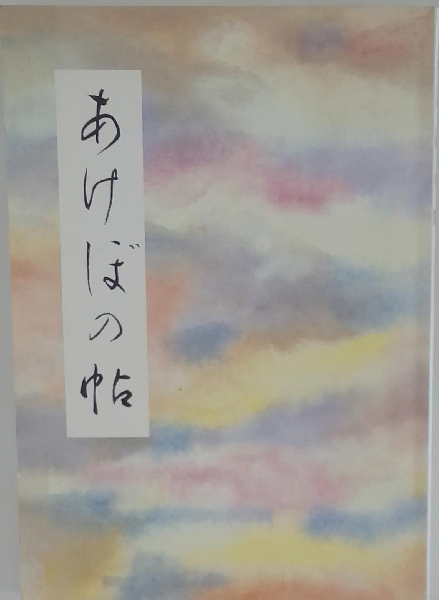 あけぼの帖